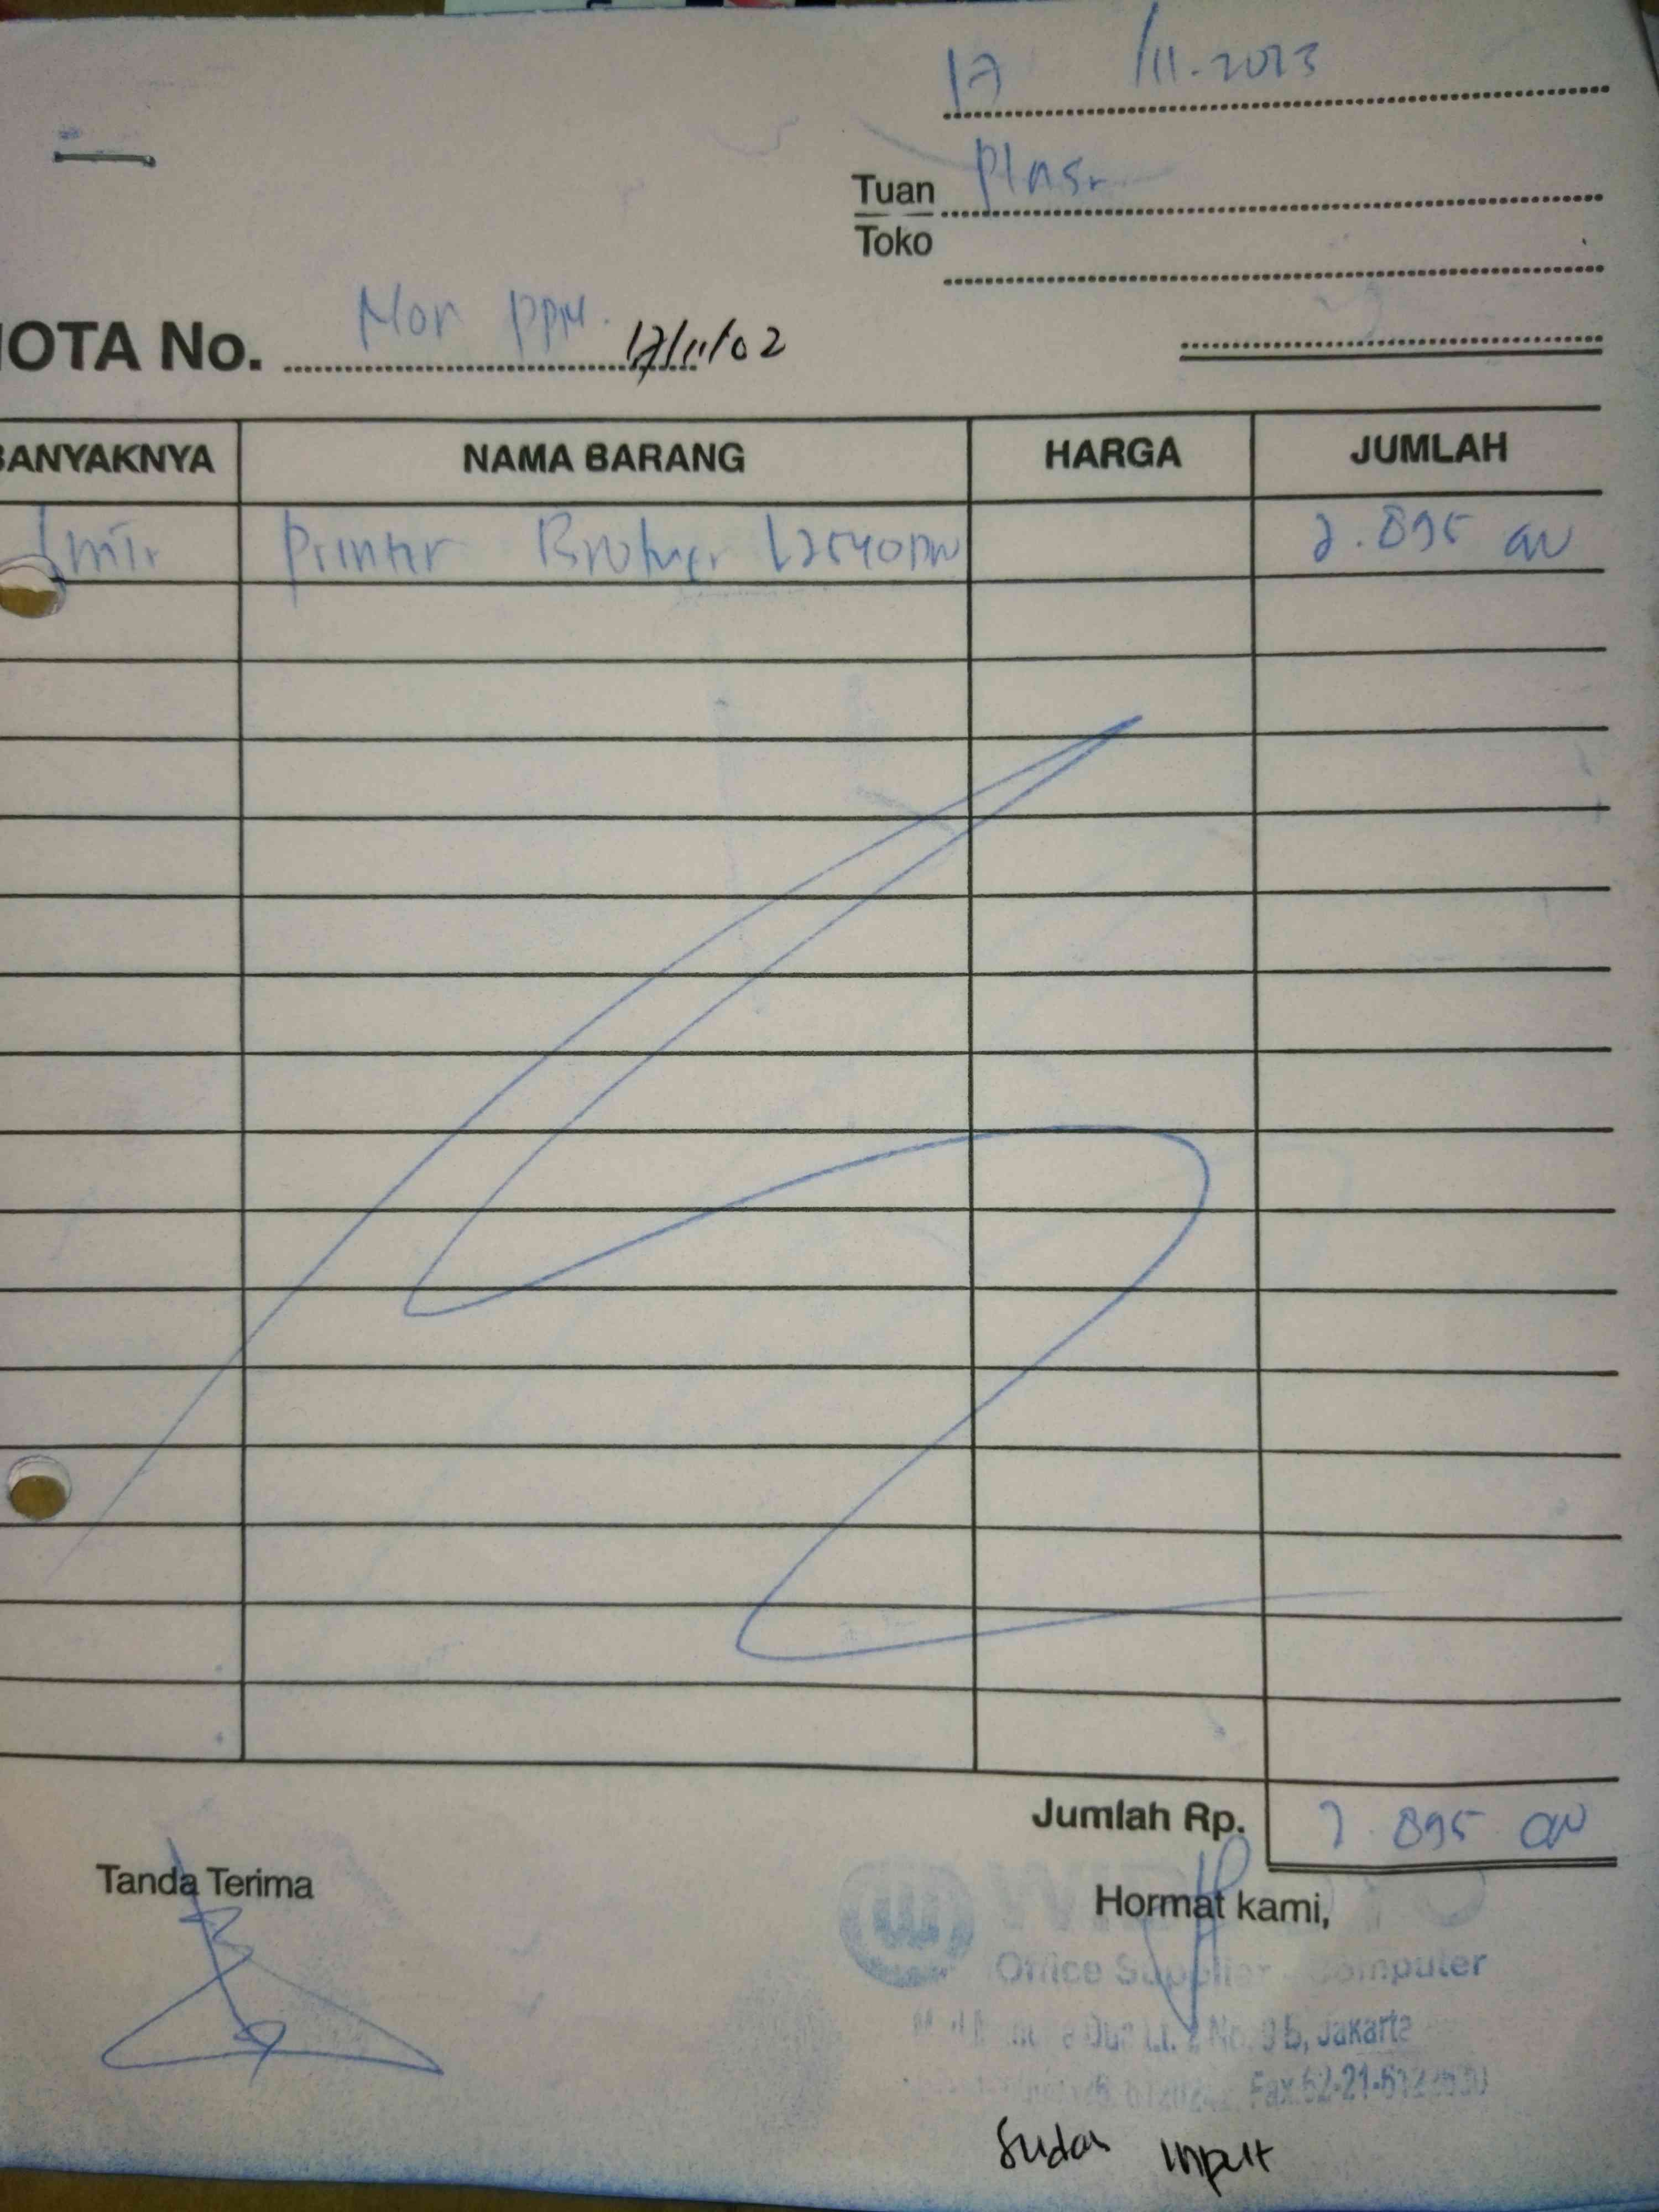 17 /11.2023
Tuan
Toko
NOTA No. Non PPN. 17/11/02
BANYAKNYA NAMA BARANG HARGA JUMLAH
Printer Brother L2540DW 2.895
Jumlah Rp. 2.895
Tanda Terima
Hormat kami,
Office Supplier Computer
Lt. 2 No. 9 b, Jakarta
Fax.62-21-
Sudah Input